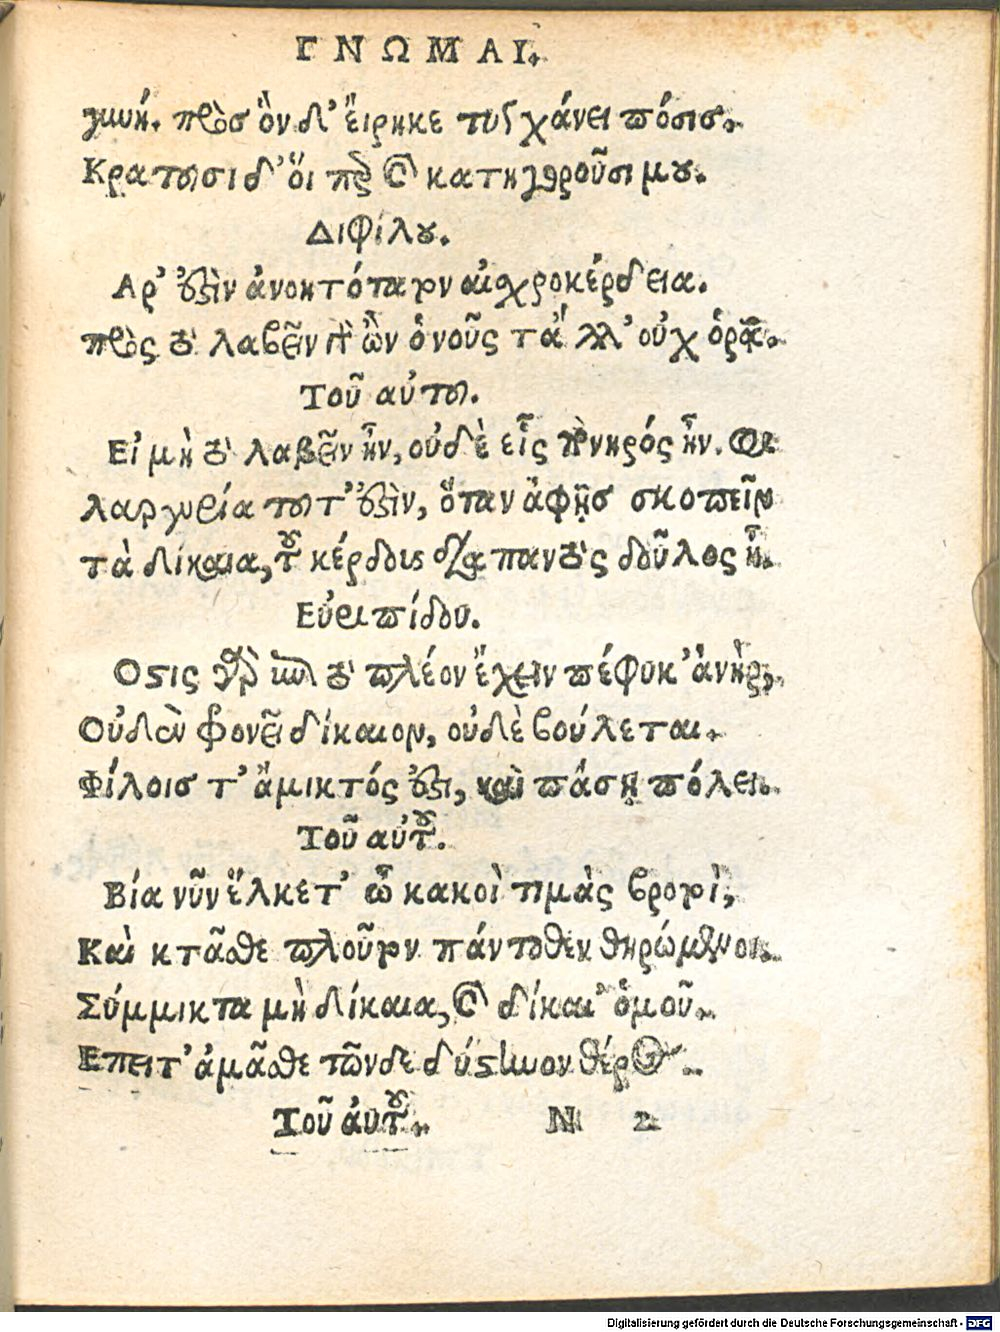 ΓΝΩΜΑΙ.
γυνή. πρὸσ ὃν δ' εἴρηκε τυγχάνει πόσισ.
Κρατουσι δ' οἵ πρ καὶ κατηγοροῦσι μου.
Διφίλου.
Αρ' ἐστὶν ἀνοητότατον αἰσχροκέρδεια.
πρὸς τὸ λαβεῖν γὰρ ὢν ὁ νοῦς τἄλλ' οὐχ ὁρᾷ.
Τοῦ αὐτου.
Εἰ μὴ τὸ λαβεῖν ἦν, οὐδὲ εἷς πονηρός ἦν. Φι
λαργυρία τουτ' ἐστὶν, ὅταν ἀφῇσ σκοπεῖν
τὰ δίκαια, τοῦ κέρδους διὰ παντὸς δοῦλος ᾖ.
Εὐριπίδου.
Οστις γὰρ τὸ πλέον ἔχειν πέφυκ' ἀνὴρ,
Οὐδὲν φρονεῖ δίκαιον, οὐδὲ βούλεται.
Φίλοισ τ' ἄμικτός ἐστι, καὶ πάσῃ πόλει.
Τοῦ αὐτοῦ.
Βία νῦν ἕλκετ' ὦ κακοὶ τιμὰς βροτοὶ,
Καὶ κτᾶσθε πλοῦτον πάντοθεν θηρώμενοι.
Σύμμικτα μὴ δίκαια, καὶ δίκαι' ὁμοῦ.
Επειτ' ἀμᾶσθε τῶνδε δύστηνον θέρος.
Τοῦ αὐτοῦ. N 2
Digitalisierung gefördert durch die Deutsche Forschungsgemeinschaft - DFG